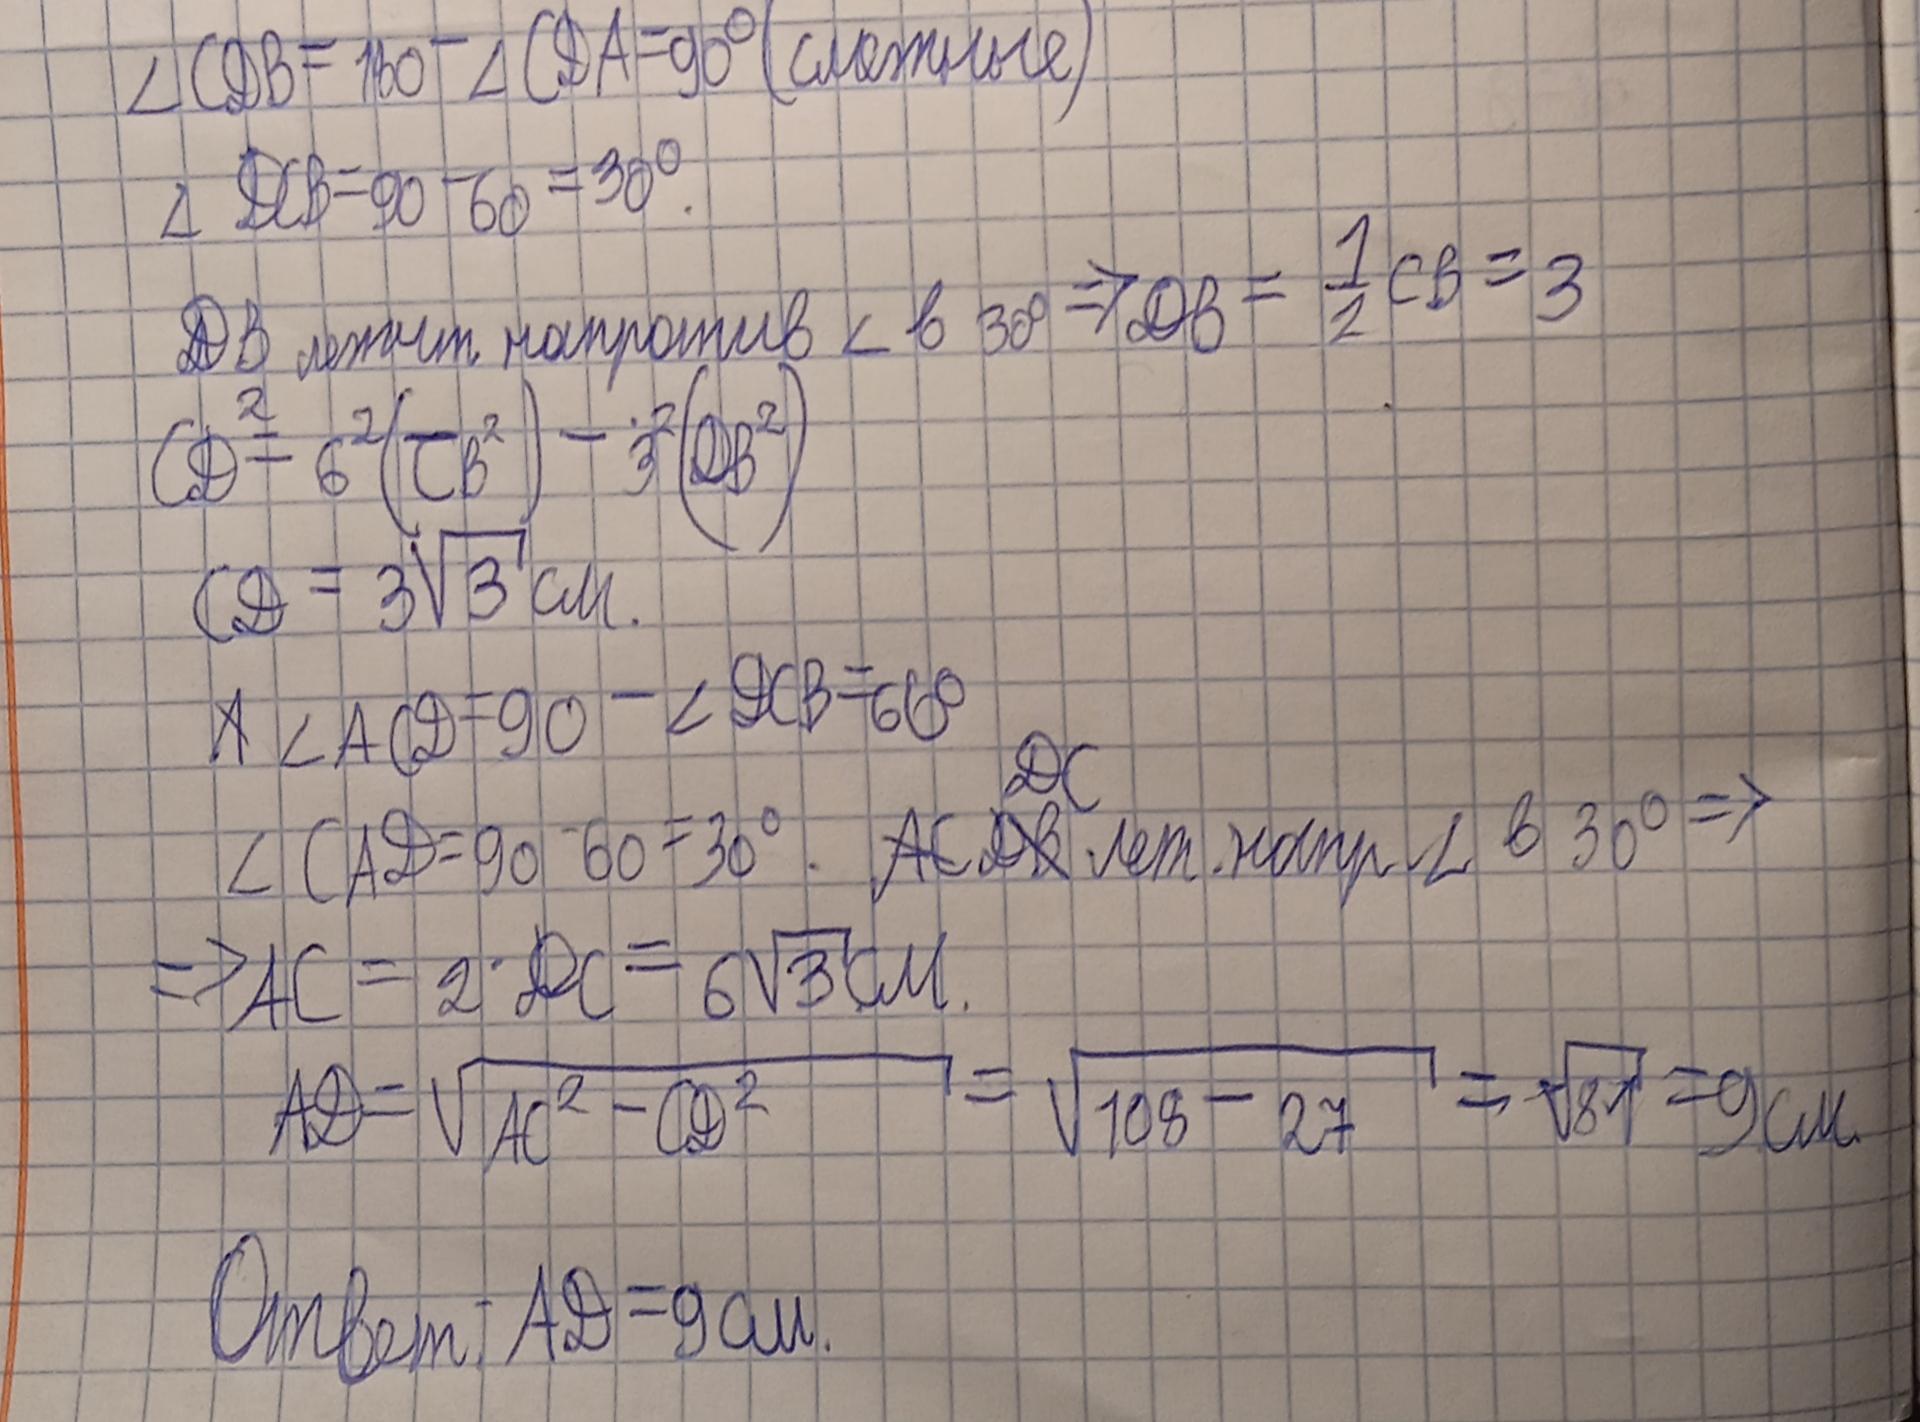 ∠CDB=180-∠CDA=90°(смежные)
∠DCB=90-60=30°.
DB лежит напротив ∠ в 30°⇒DB=1/2CB=3
CD²=6²(CB²)-3²(DB²)
CD=3√3см.
∠ACD=90-∠DCB=60°
∠CAD=90-60=30°. DC леж.напр.∠ в 30°⇒
⇒AC=2·DC=6√3см.
AD=√AC²-CD²=√108-27=√81=9см.
Ответ: AD=9см.